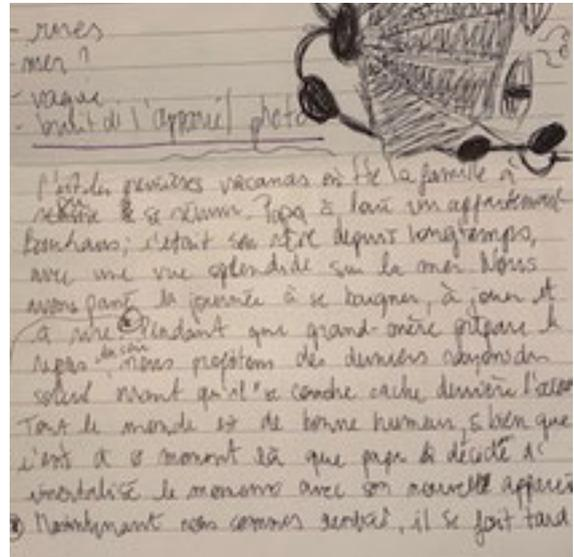 - rires
- mer ?
- vague
- bruit de l'appareil photo
C'est les premières vacances où tte la famille à
se réunir. Papa à loué un appartement
; c'était son rêve depuis longtemps,
avec une vue splendide sur la mer. Nous
avons passé la journée à se baigner, à jouer et
à rire. Pendant que grand-mère prépare le
repas du soir, nous profitons des derniers rayons du
soleil avant qu'il se couche cache derrière l'
Tout le monde est de bonne humeur, si bien que
c'est à ce moment là que papa à décidé d'
imortalisé le moment avec son nouvelle appareil
Maintenant nous sommes rentrés, il se fait tard